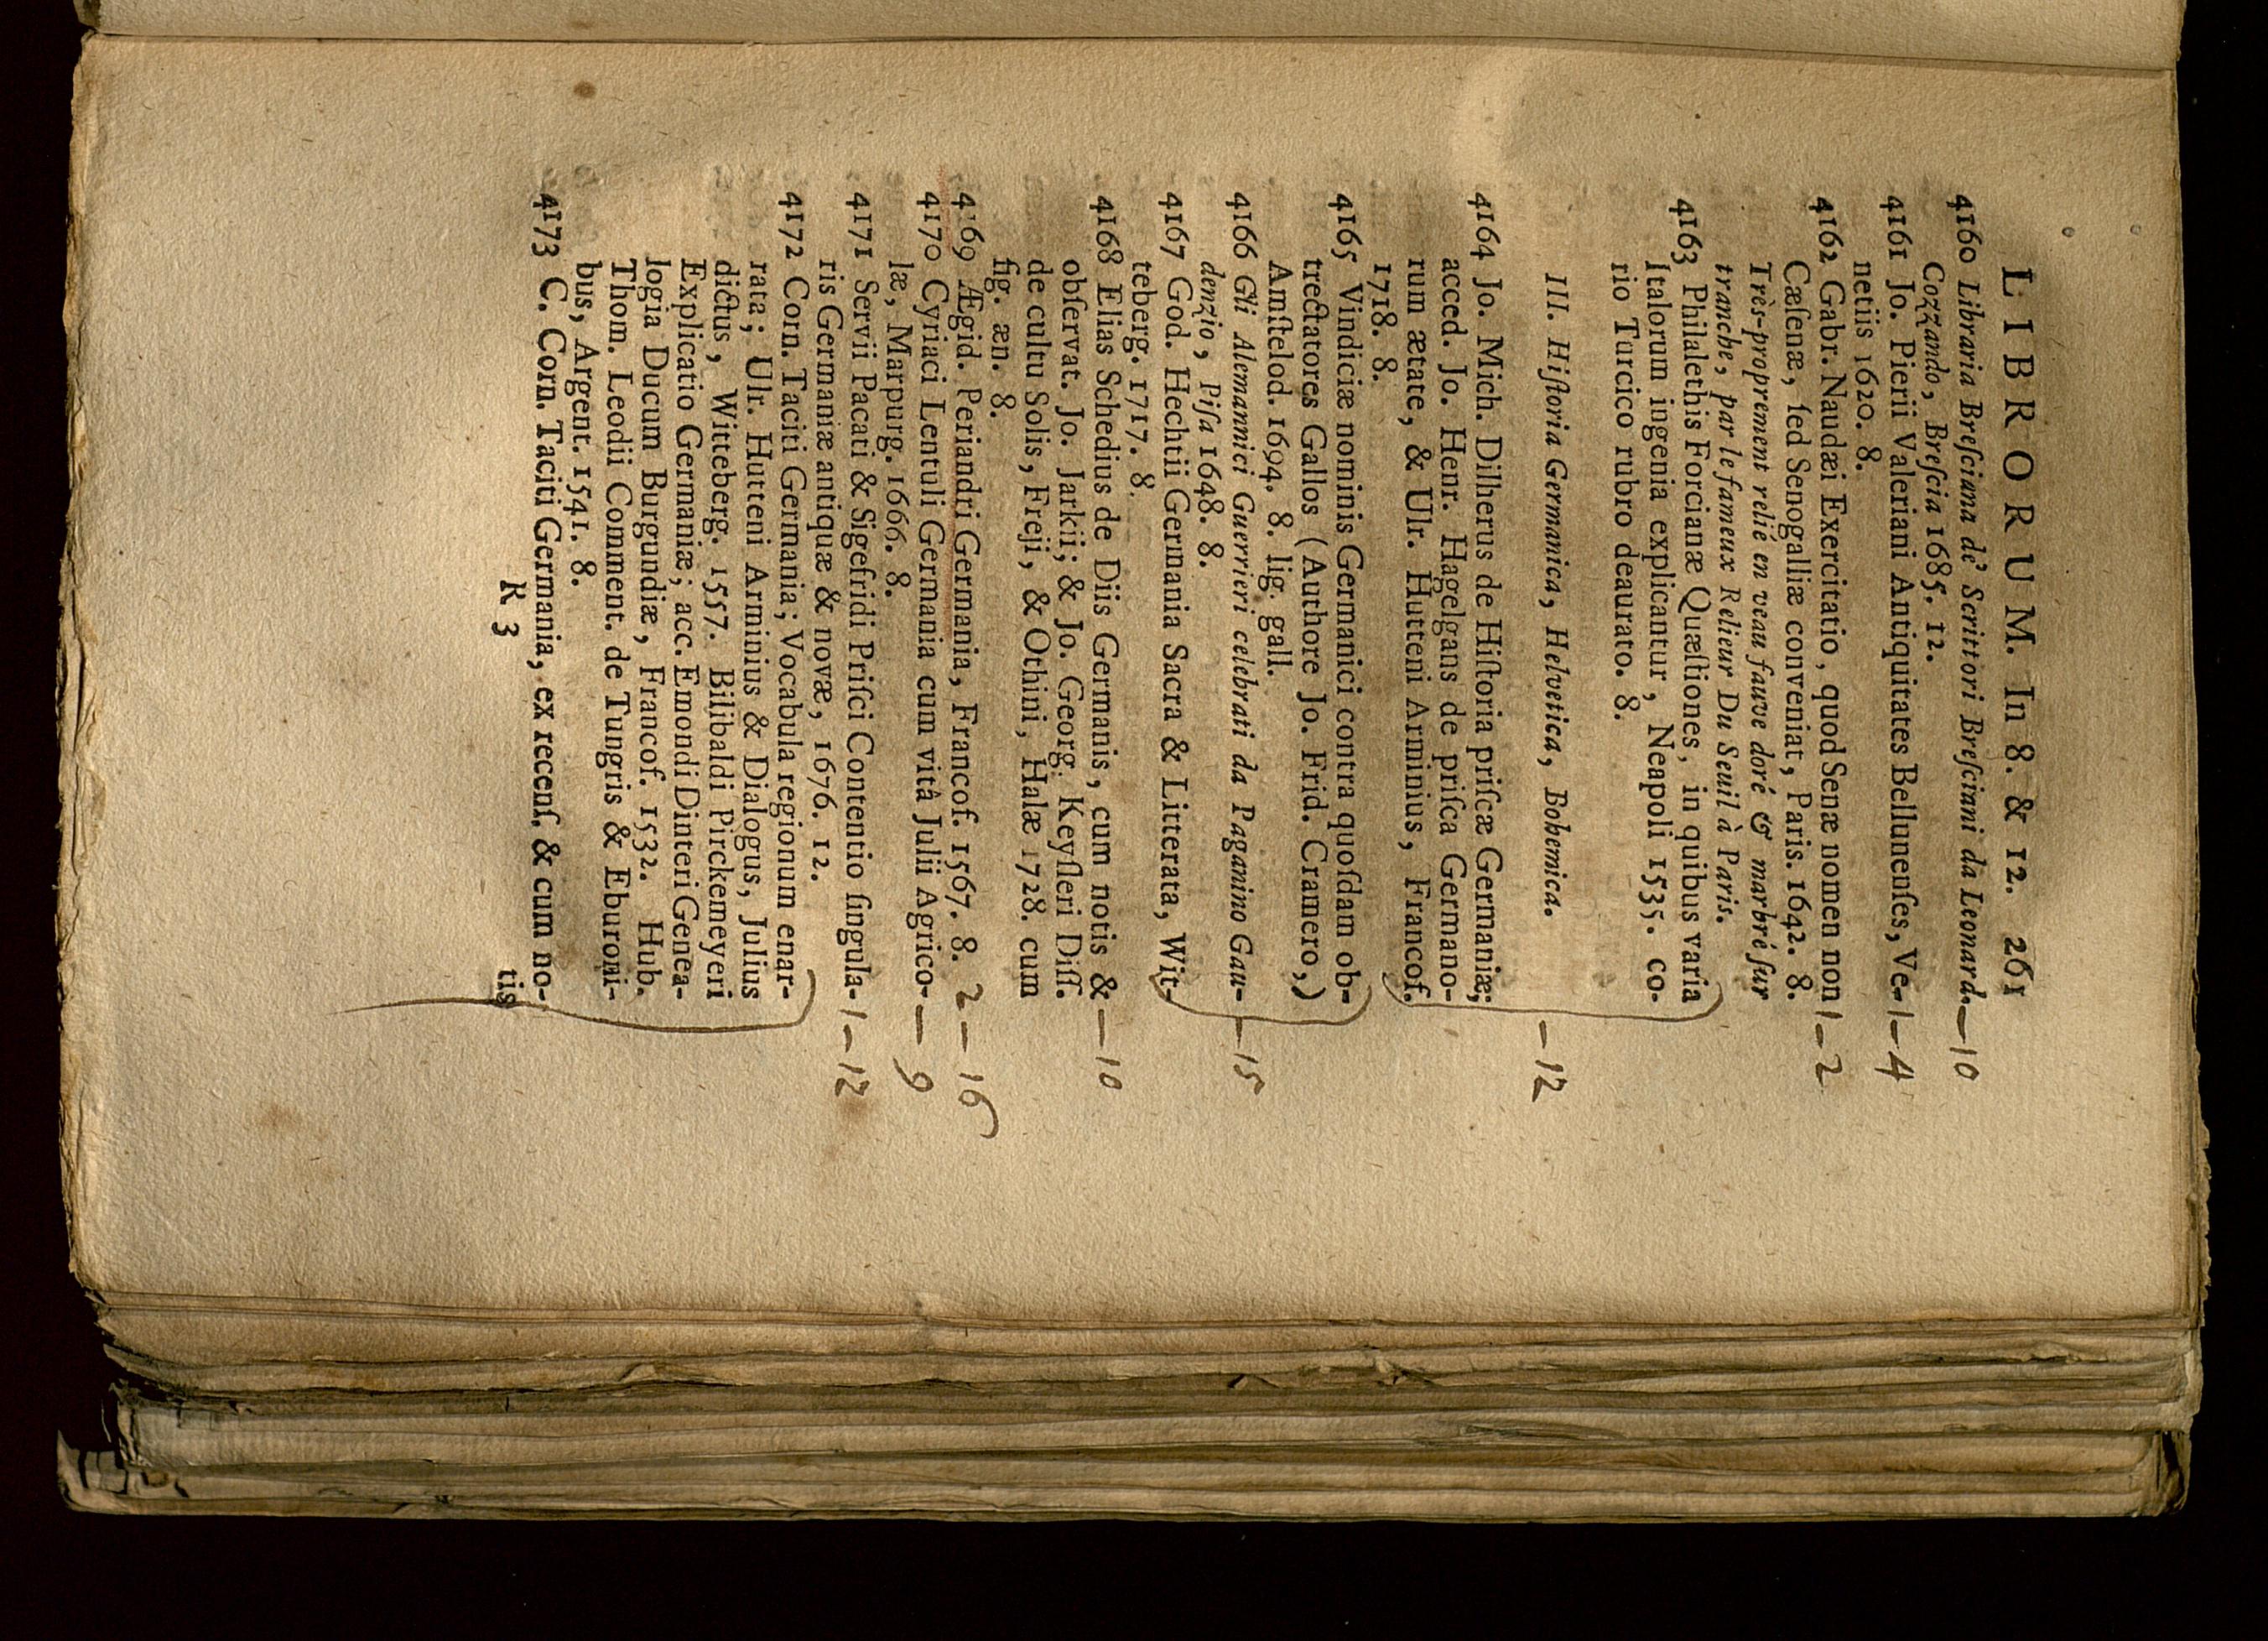 LIBRORUM. In 8. & 12. 261
4160 Libraria Breſciana de' Scrittori Breſciani da Leonard. — 10
Cozzando, Breſcia 1685. 12.
4161 Jo. Pierii Valeriani Antiquitates Bellunenſes, Ve- 1 — 4
netiis 1620. 8.
4162 Gabr. Naudæi Exercitatio, quod Senæ nomen non 1 — 2
Cæſenæ, ſed Senogalliæ conveniat, Paris. 1642. 8.
Très-proprement relié en veau fauve doré & marbré ſur
tranche, par le fameux Relieur Du Seuil à Paris.
4163 Philalethis Forcianæ Quæſtiones, in quibus varia
Italorum ingenia explicantur, Neapoli 1535. co-
rio Turcico rubro deaurato. 8.
III. Hiſtoria Germanica, Helvetica, Bohemica. — 12
4164 Jo. Mich. Dilherus de Hiſtoria priſcæ Germaniæ;
acced. Jo. Henr. Hagelgans de priſca Germano-
rum ætate, & Ulr. Hutteni Arminius, Francof.
1718. 8.
4165 Vindiciæ nominis Germanici contra quoſdam ob-
trectatores Gallos (Authore Jo. Frid. Cramero,)
Amſtelod. 1694. 8. lig. gall.
4166 Gli Alemannici Guerrieri celebrati da Paganino Gau- — 15
denzio, Piſa 1648. 8.
4167 God. Hechtii Germania Sacra & Litterata, Wit-
teberg. 1717. 8.
4168 Elias Schedius de Diis Germanis, cum notis & — 10
obſervat. Jo. Jarkii; & Jo. Georg. Keyſleri Diſſ.
de cultu Solis, Freji, & Othini, Halæ 1728. cum
fig. æn. 8.
4169 Ægid. Periandri Germania, Francof. 1567. 8. 2 — 16
4170 Cyriaci Lentuli Germania cum vitâ Julii Agrico- — 9
læ, Marpurg. 1666. 8.
4171 Servii Pacati & Sigefridi Priſci Contentio ſingula- 1 — 12
ris Germaniæ antiquæ & novæ, 1676. 12.
4172 Corn. Taciti Germania; Vocabula regionum enar-
rata; Ulr. Hutteni Arminius & Dialogus, Julius
dictus, Witteberg. 1557. Bilibaldi Pirckemeyeri
Explicatio Germaniæ; acc. Emondi Dinteri Genea-
logia Ducum Burgundiæ, Francof. 1532. Hub.
Thom. Leodii Comment. de Tungris & Eburoni-
bus, Argent. 1541. 8.
4173 C. Corn. Taciti Germania, ex recenſ. & cum no-
R 3 tis